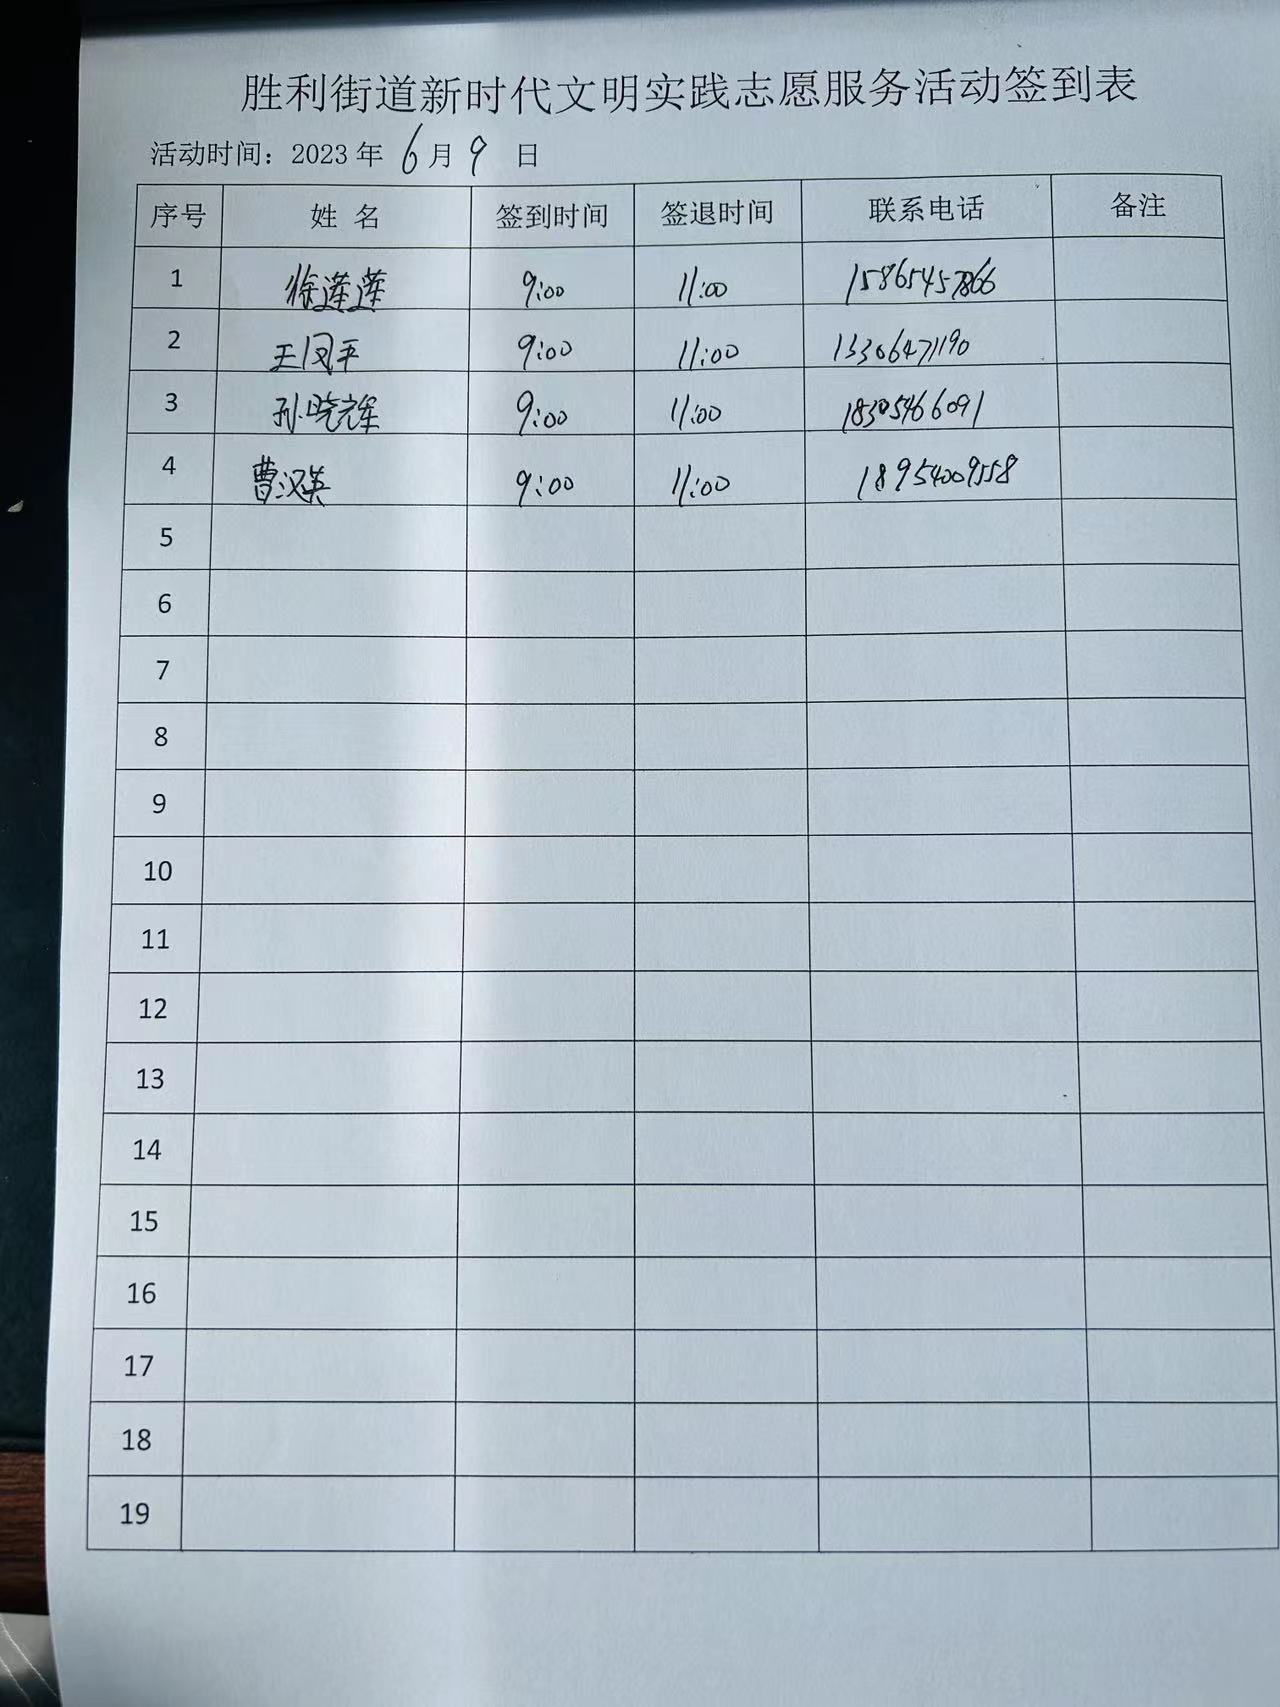 胜利街道新时代文明实践志愿服务活动签到表
活动时间：2023年 6月 9 日
序号 姓 名 签到时间 签退时间 联系电话 备注
1 徐莲莲 9:00 11:00 15865457866
2 王凤平 9:00 11:00 13306471190
3 孙晓辉 9:00 11:00 18305466091
4 曹汉英 9:00 11:00 18954009558
5
6
7
8
9
10
11
12
13
14
15
16
17
18
19